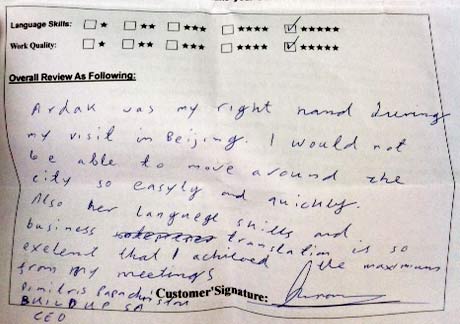 Language Skills: ☐ ★ ☐ ★★ ☐ ★★★ ☐ ★★★★ ☑ ★★★★★
Work Quality: ☐ ★ ☐ ★★ ☐ ★★★ ☐ ★★★★ ☑ ★★★★★
Overall Review As Following:
Ardak was my right hand during
my visit in Beijing. I would not
be able to move around the
city so easyly and quickly.
Also her language skills and
business translation is so
exelend that I achieved the maximum
from my meetings
Dimitris Customer'Signature:
BUILDUP SA
CEO